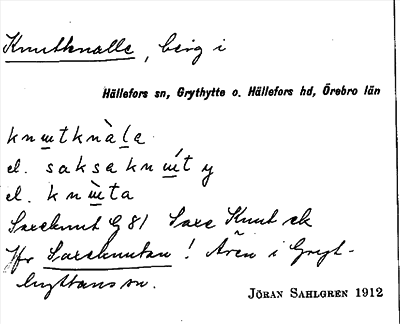 Knutknalle, berg i
Hällefors sn, Grythytte o. Hällefors hd, Örebro län
knɯtknàla
el. saksaknɯ́t y
el. knɯ̀ta
Saxeknut G 81 Saxe Knut ek
Jfr Saxeknuten! Även i Gryt-
hyttans sn.
JÖRAN SAHLGREN 1912